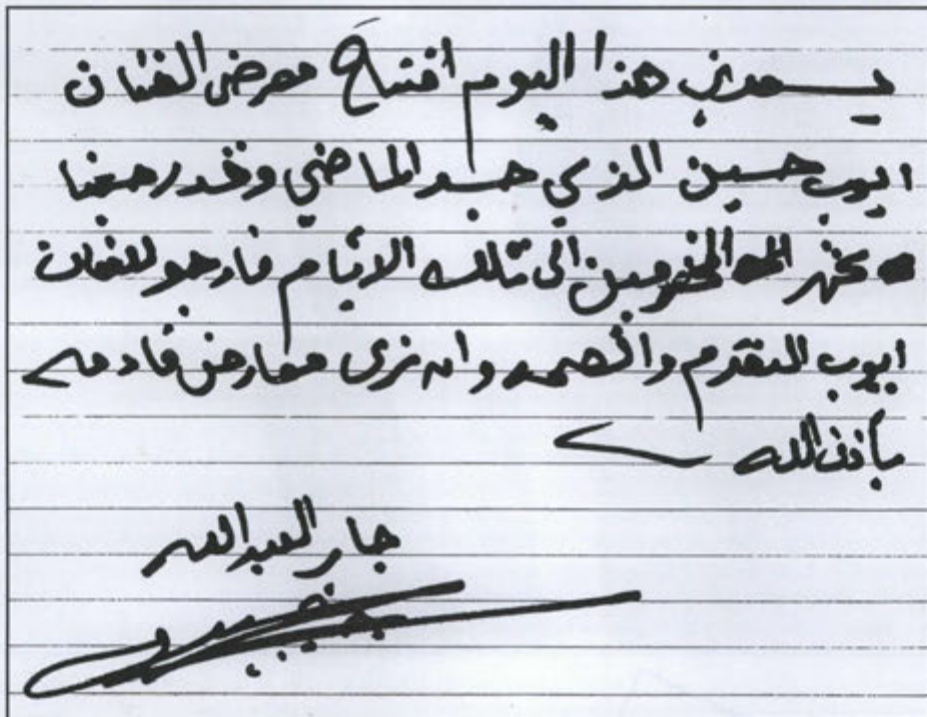 يسعدني هذا اليوم افتتاح معرض الفنان
ايوب حسين الذي جسد الماضي وقد رجعنا
نحن المخضرمين الى تلك الايام فارجو للفنان
ايوب التقدم والصحه وان نرى معارض قادمه
بأذن الله
جابر العبدالله